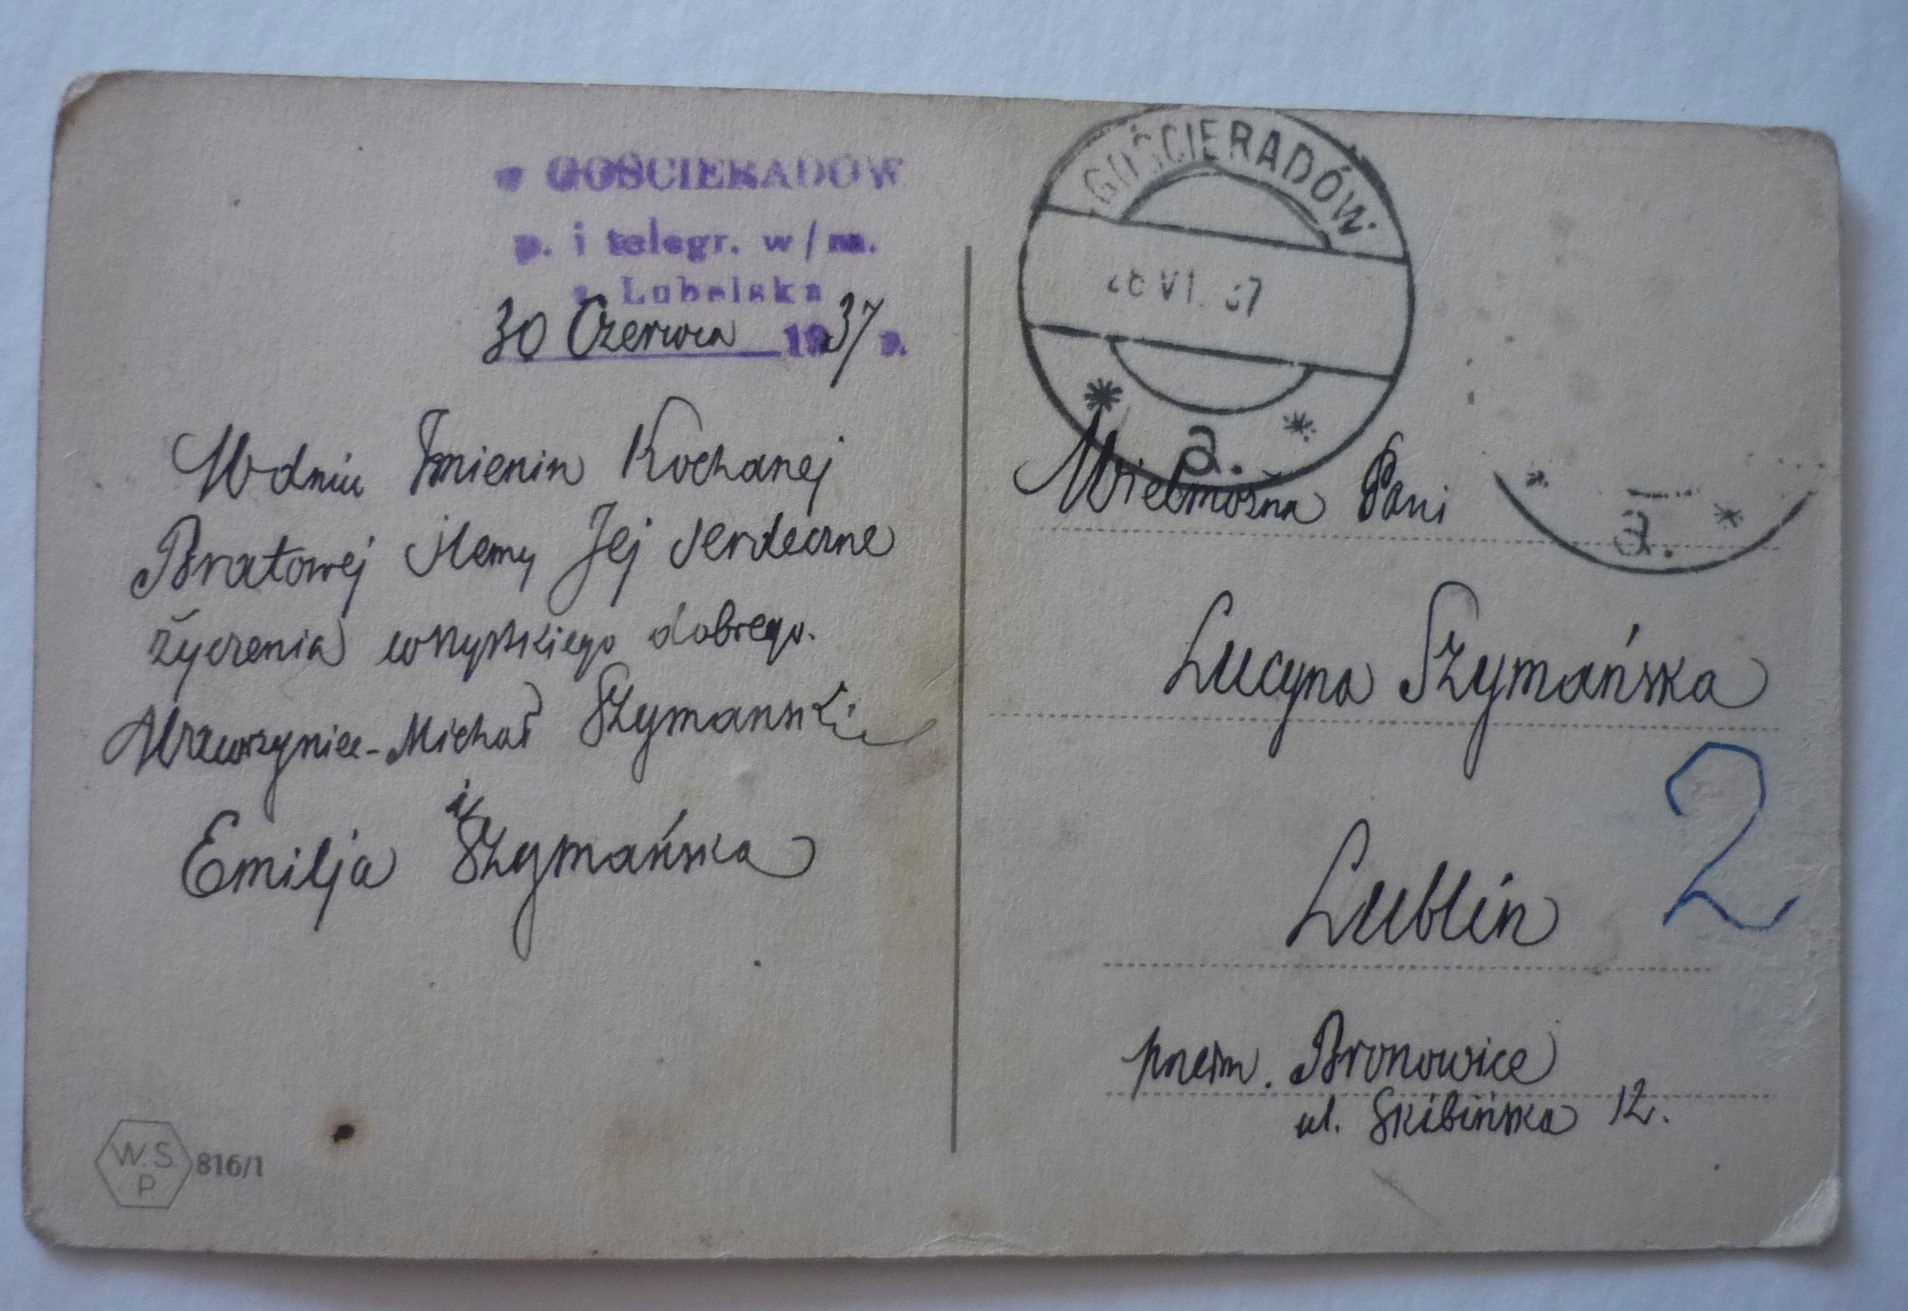 w GOŚCIERADÓW
p. i telegr. w/m.
Lubelska
30 Czerwca 1937 r.
W dniu Imienin Kochanej
Bratowej ślemy Jej serdeczne
życzenia wszystkiego dobrego.
Wawrzyniec-Michał Szymanski
i
Emilja Szymańska
W.S.
P.
816/1
GOŚCIERADÓW
VI. 37
a.
a.
Wielmożna Pani
Lucyna Szymańska
2
Lublin
przedm. Bronowice
ul. Skibińska 12.